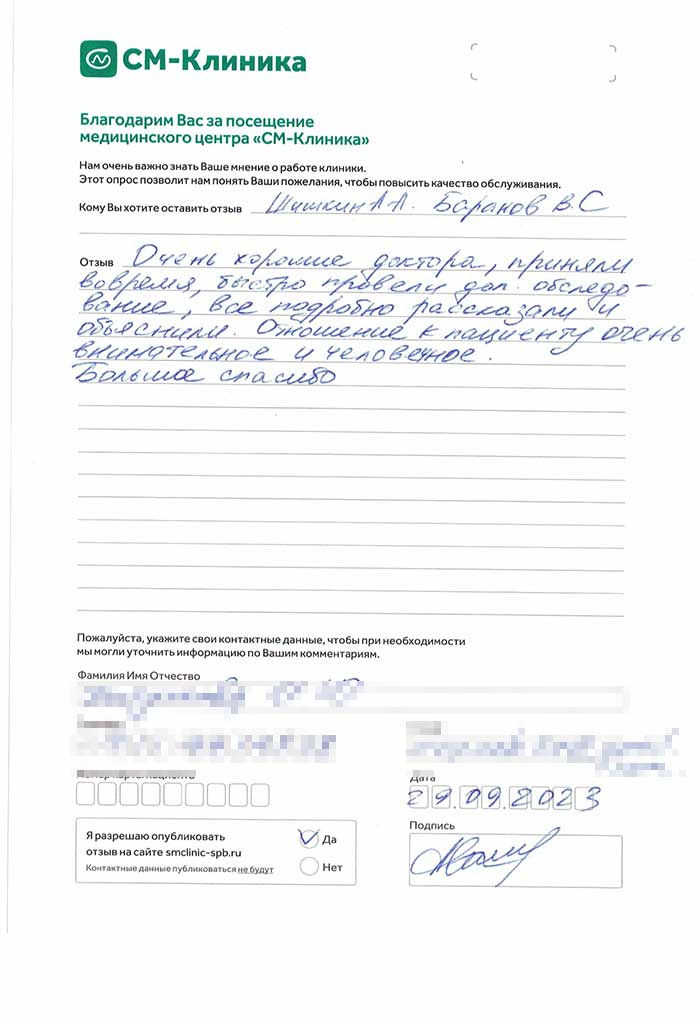 СМ-Клиника
Благодарим Вас за посещение
медицинского центра «СМ-Клиника»
Нам очень важно знать Ваше мнение о работе клиники.
Этот опрос позволит нам понять Ваши пожелания, чтобы повысить качество обслуживания.
Кому Вы хотите оставить отзыв Шишкин А.А. Баранов В.С
Отзыв Очень хорошие доктора, приняли
вовремя, быстро провели доп. обследо-
вание, все подробно рассказали и
объяснили. Отношение к пациенту очень
внимательное и человечное.
Большое спасибо
Пожалуйста, укажите свои контактные данные, чтобы при необходимости
мы могли уточнить информацию по Вашим комментариям.
Фамилия Имя Отчество
Номер карты пациента
Дата
29.09.2023
Я разрешаю опубликовать
отзыв на сайте smclinic-spb.ru
Контактные данные публиковаться не будут
Да
Нет
Подпись